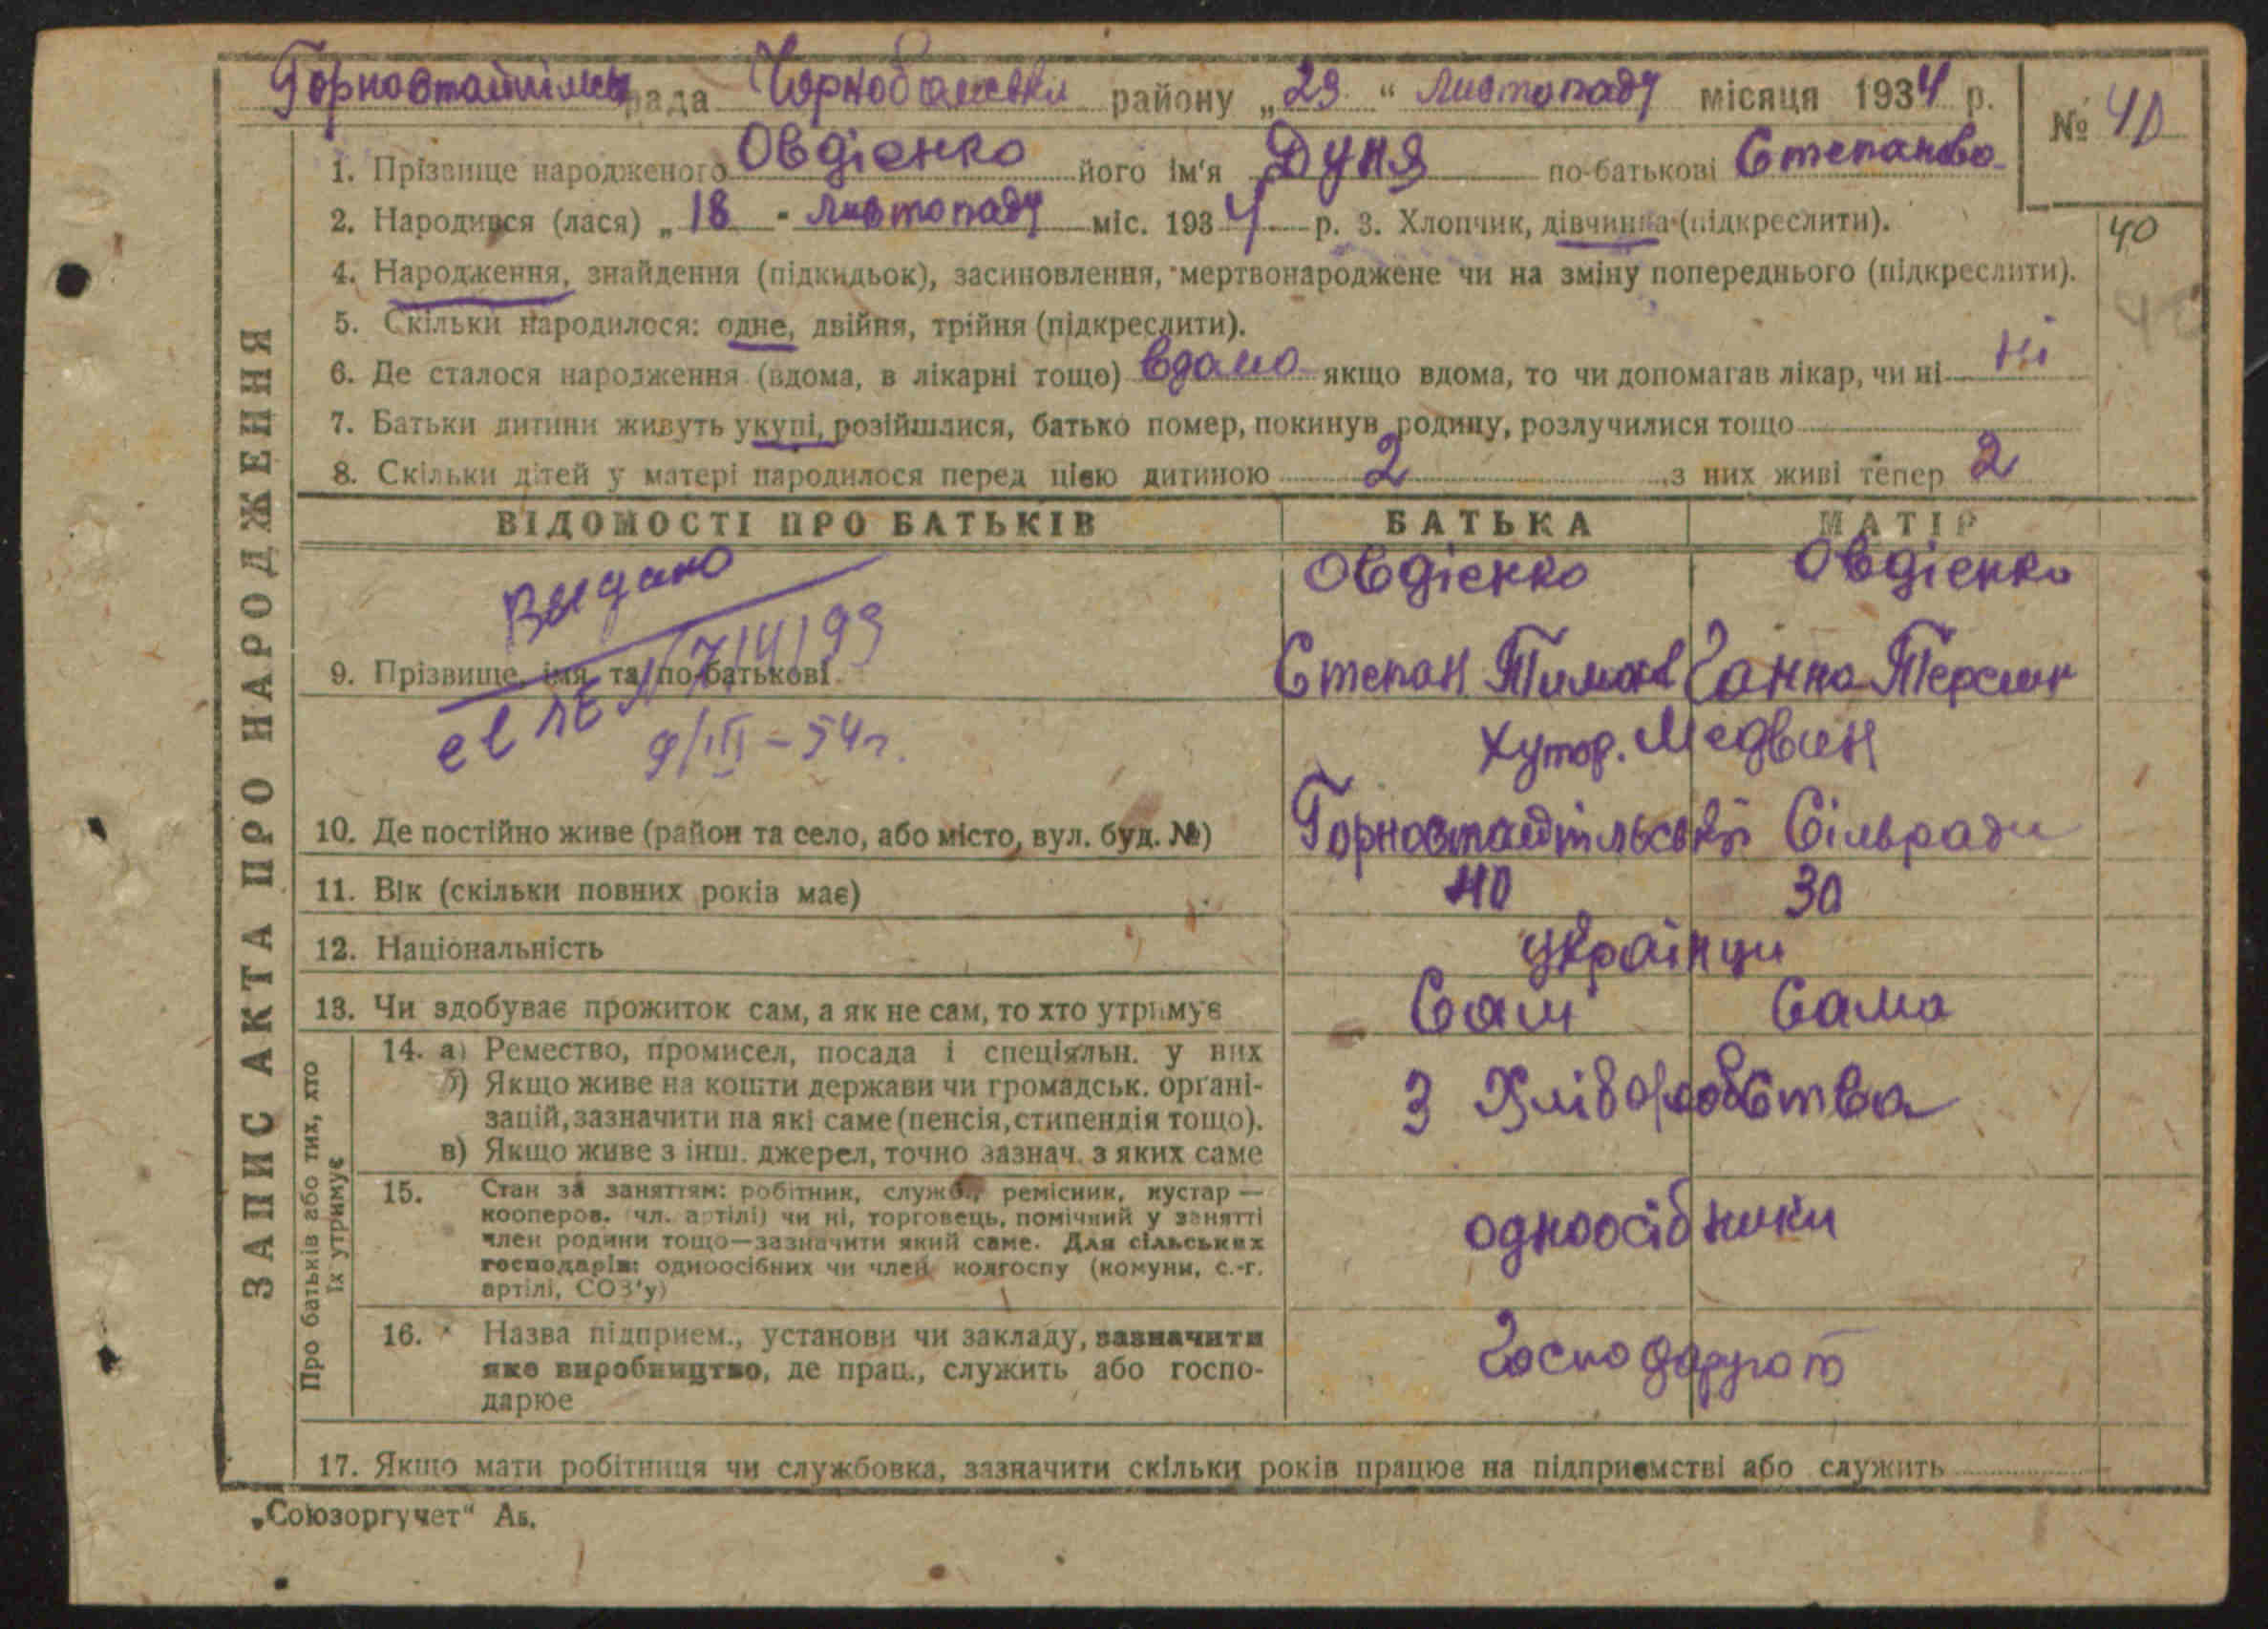 Горностайпільськ рада Чорнобильськ району „23“ листопаду місяця 1934 р.
№ 40
1. Прізвище народженого Овдієнко його ім'я Дуня по-батькові Степановa
2. Народився (лася) „18 - листопаду міс. 1934 р. 3. Хлопчик, дівчинка (підкреслити).
40
4. Народження, знайдення (підкидьок), засиновлення, мертвонароджене чи на зміну попереднього (підкреслити).
40
5. Скільки народилося: одне, двійня, трійня (підкреслити).
6. Де сталося народження (вдома, в лікарні тощо) вдома якщо вдома, то чи допомагав лікар, чи ні ні
7. Батьки дитини живуть укупі, розійшлися, батько помер, покинув родину, розлучилися тощо
8. Скільки дітей у матері народилося перед цією дитиною 2 з них живі тепер 2
ЗАПИС АКТА ПРО НАРОДЖЕННЯ
ВІДОМОСТІ ПРО БАТЬКІВ БАТЬКА МАТІР
Видано
Овдієнко Овдієнко
9. Прізвище, імя та по-батькові Степан Тимов Ганна Терешк
9/III – 54г.
хутор. Медвин
10. Де постійно живе (район та село, або місто, вул. буд. №) Горностайпільської Сільради
11. Вік (скільки повних років має) 40 30
12. Національність українци
13. Чи здобуває прожиток сам, а як не сам, то хто утримує Сам Сама
Про батьків або тих, хто їх утримує
14. а) Ремество, промисел, посада і спеціяльн. у них
б) Якщо живе на кошти держави чи громадськ. органі-
зацій, зазначити на які саме (пенсія, стипендія тощо).
в) Якщо живе з інш. джерел, точно зазнач. з яких саме
З Хліборобства
15. Стан за заняттям: робітник, служб., ремісник, кустар —
кооперов. (чл. артілі) чи ні, торговець, помічний у занятті
член родини тощо—зазначити який саме. Для сільських
господарів: одноосібних чи член колгоспу (комуни, с.-г.
артілі, СОЗ'у)
одноосібники
16. Назва підприєм., установи чи закладу, зазначити
яке виробництво, де прац., служить або госпо-
дарює
Господарують
17. Якщо мати робітниця чи службовка, зазначити скільки років працює на підприємстві або служить
„Союзоргучет“ Ав.